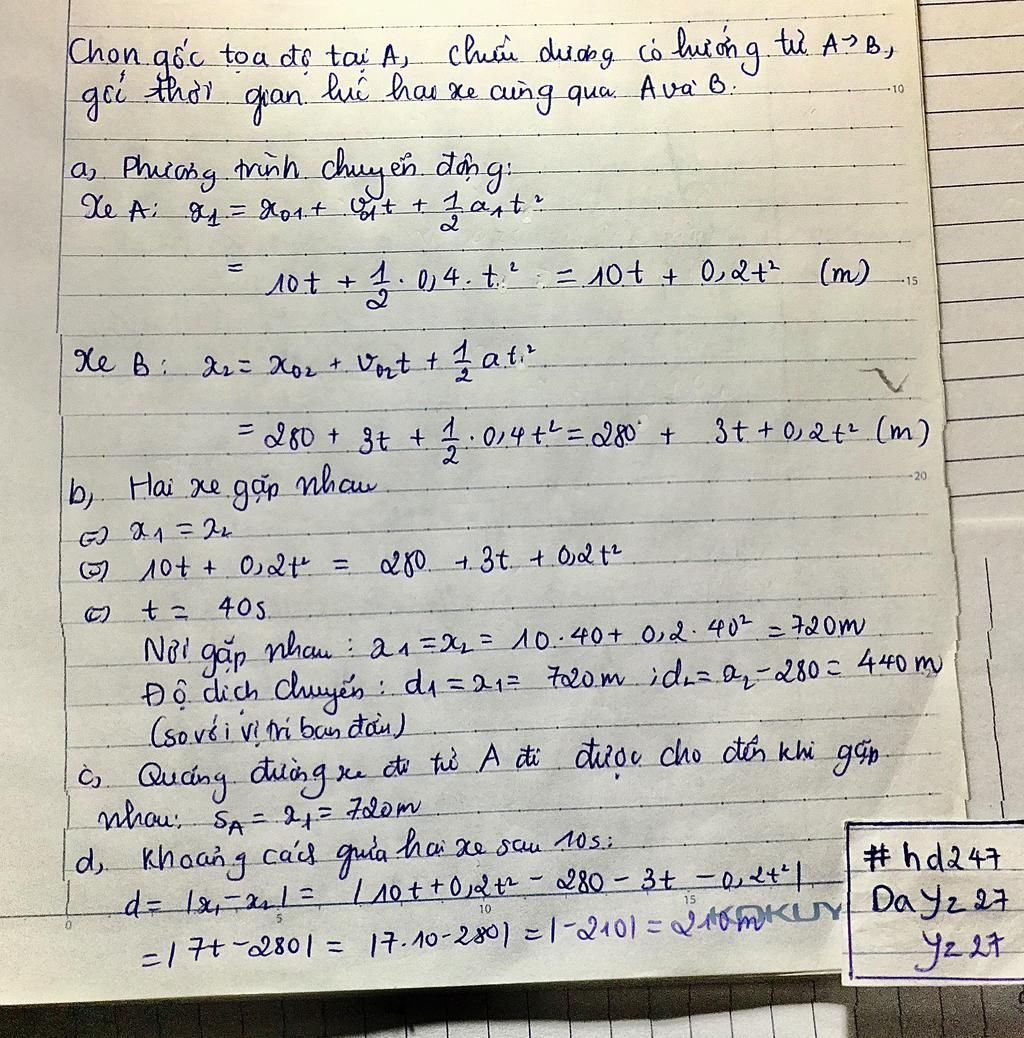 Chọn gốc tọa độ tại A, chiều dương có hướng từ A→B,
gốc thời gian lúc hai xe cùng qua A và B.
10
a, Phương trình chuyển động:
Xe A: x₁ = x₀₁ + v₀₁t + 1/2 a₁t²
= 10t + 1/2 · 0,4 · t² = 10t + 0,2t² (m)
15
Xe B: x₂ = x₀₂ + v₀₂t + 1/2 at²
= 280 + 3t + 1/2 · 0,4t² = 280 + 3t + 0,2t² (m)
20
b, Hai xe gặp nhau
⇔ x₁ = x₂
⇔ 10t + 0,2t² = 280 + 3t + 0,2t²
⇔ t = 40s
Nơi gặp nhau: x₁ = x₂ = 10·40 + 0,2·40² = 720m
Độ dịch chuyển: d₁ = x₁ = 720m ; d₂ = x₂ - 280 = 440m
(so với vị trí ban đầu)
c, Quãng đường xe đi từ A đi được cho đến khi gặp
nhau: S_A = x₁ = 720m
d, Khoảng cách giữa hai xe sau 10s:
d = |x₁ - x₂| = |10t + 0,2t² - 280 - 3t - 0,2t²|
0 5 10 15 KOKUY
= |7t - 280| = |7·10 - 280| = |-210| = 210m
#hd247
DaYz27
Yz27